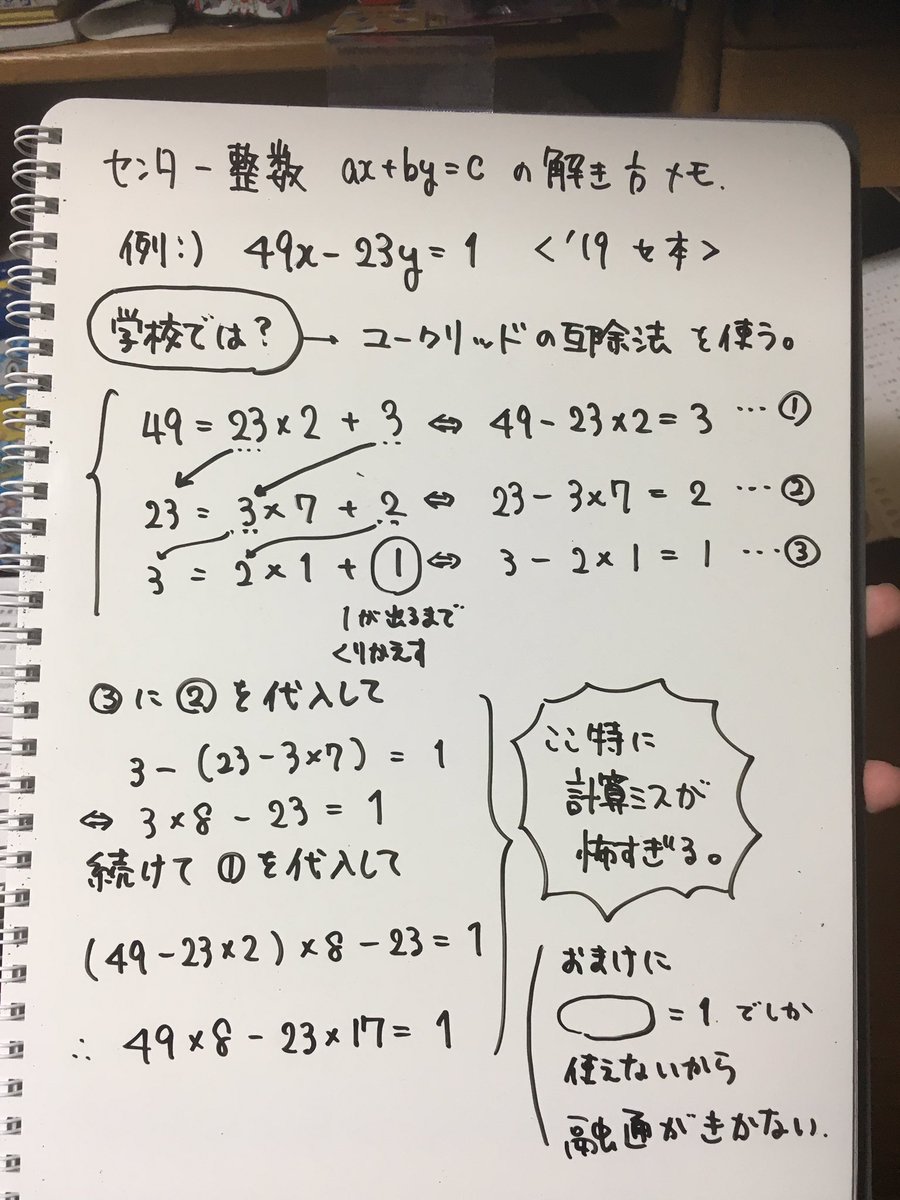 センター整数 ax+by=c の解き方メモ.
例:) 49x-23y=1 <'19 セ本>
学校では? → ユークリッドの互除法を使う。
49=23×2+3 ⇔ 49-23×2=3 …①
23=3×7+2 ⇔ 23-3×7=2 …②
3=2×1+1 ⇔ 3-2×1=1 …③
1が出るまで
くりかえす
③に②を代入して
3-(23-3×7)=1
⇔ 3×8-23=1
続けて①を代入して
(49-23×2)×8-23=1
∴ 49×8-23×17=1
ここ特に
計算ミスが
怖すぎる。
おまけに
=1 でしか
使えないから
融通がきかない.